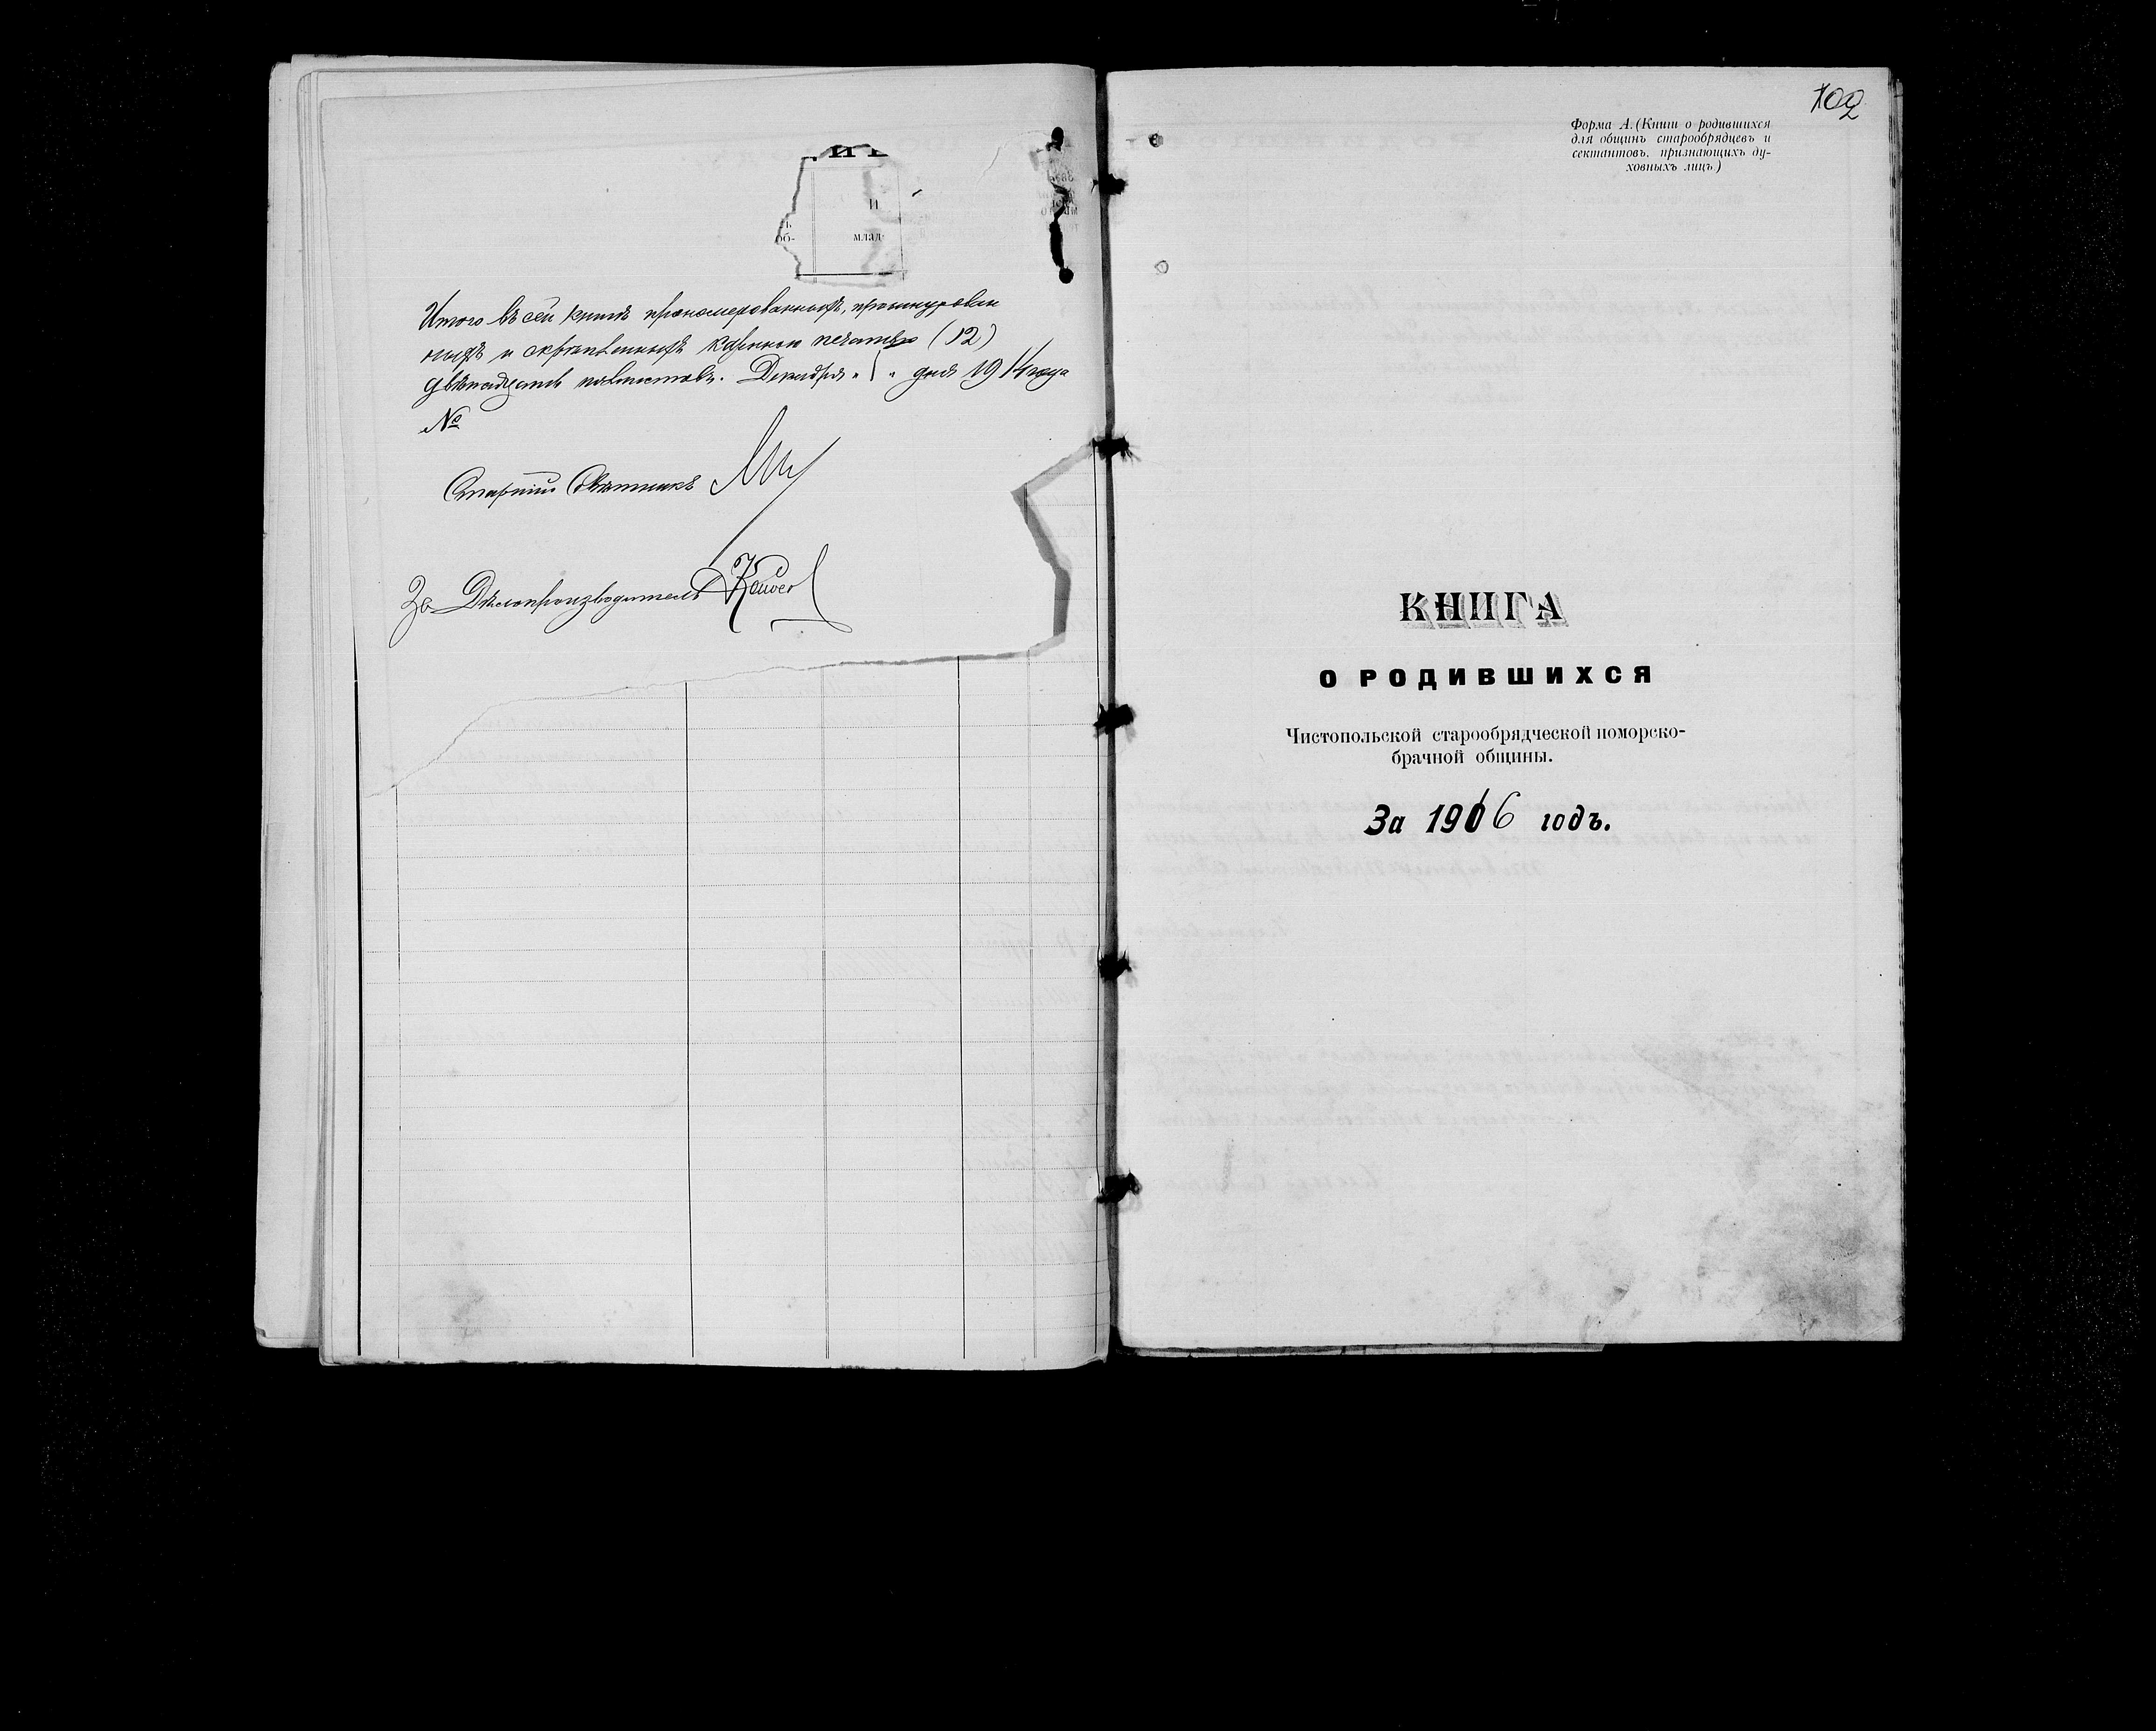 И
об-
млад
Итого въ сей книгѣ пронумерованныхъ, прошнурован
ныхъ и скрѣпленныхъ казенною печатью (12)
двѣнадцать полистовъ. Декабря " " дня 1914 года
№
Старшій Совѣтникъ
За Дѣлопроизводителя
102
Форма А. (Книги о родившихся
для общинъ старообрядцевъ и
сектантовъ, признающихъ ду-
ховныхъ лицъ)
КНИГА
О РОДИВШИХСЯ
Чистопольской старообрядческой поморско-
брачной общины.
За 1916 годъ.